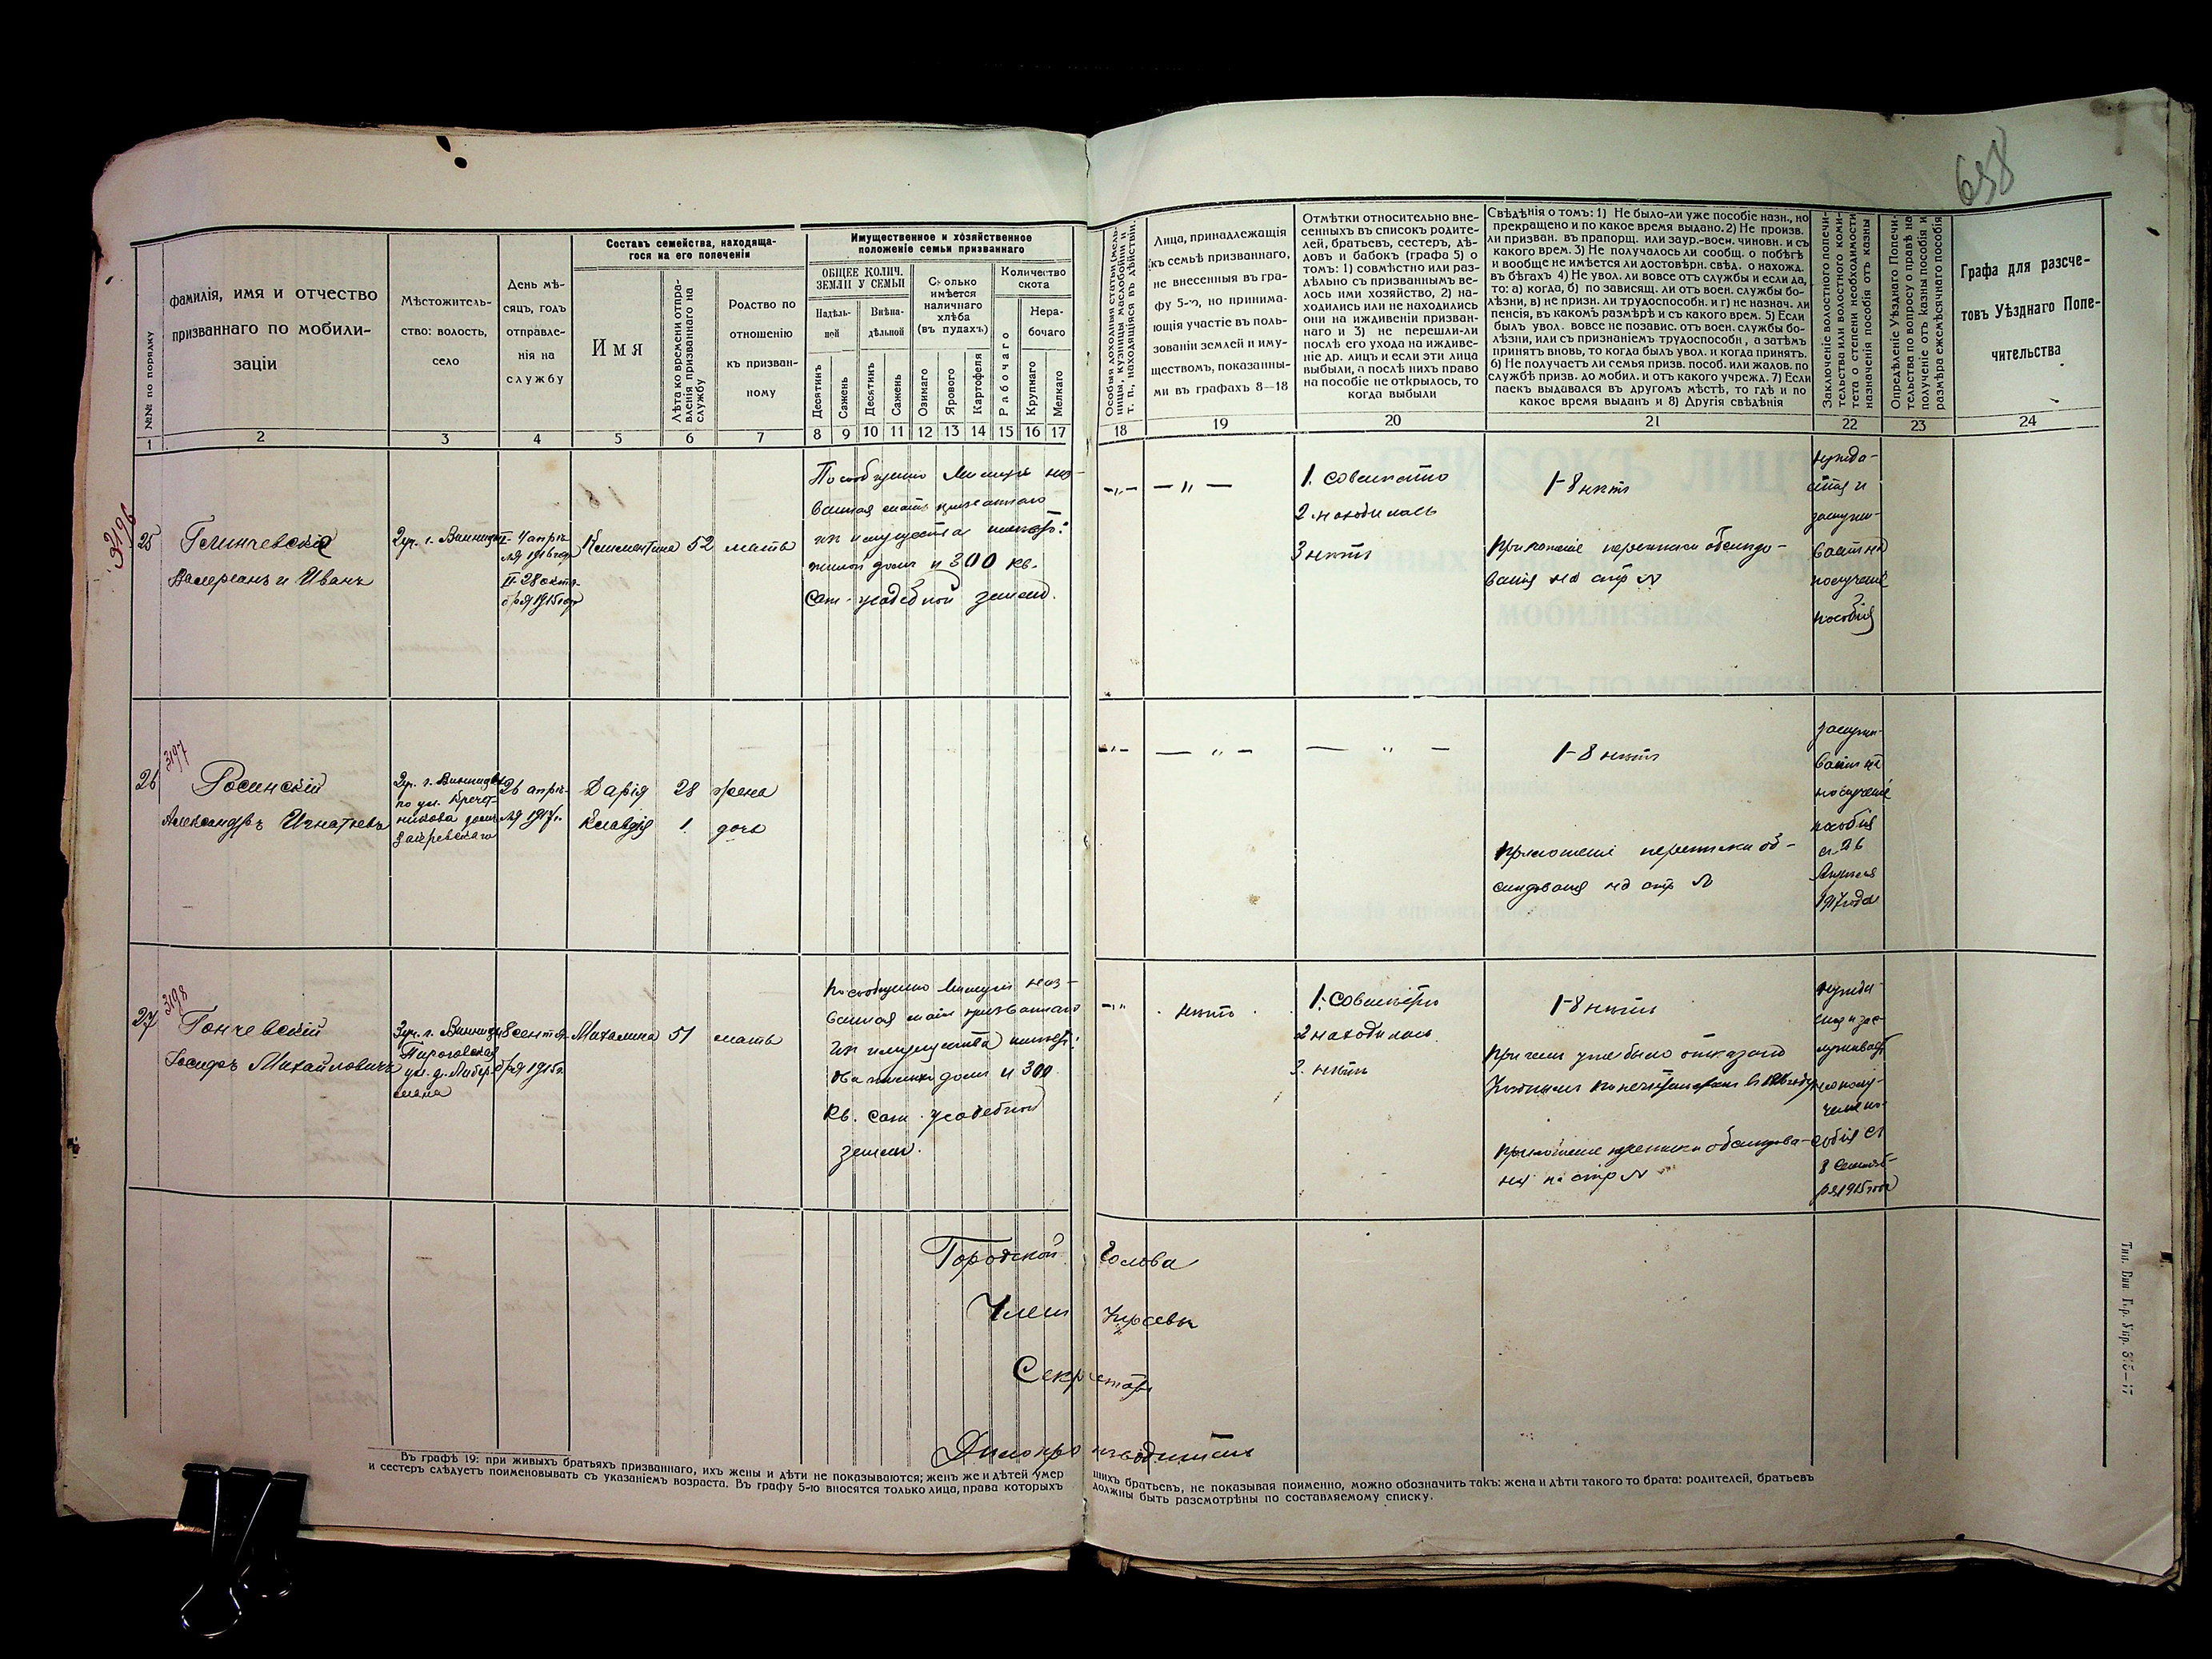 658
№№ по порядку
фамилія, имя и отчество
призваннаго по мобили-
заціи
Мѣстожитель-
ство: волость,
село
День мѣ-
сяцъ, годъ
отправле-
нія на
службу
Составъ семейства, находяща-
гося на его попеченіи
Имя
Лѣта ко времени отпра-
вленія призваннаго на
службу
Родство по
отношенію
къ призван-
ному
Имущественное и хозяйственное
положеніе семьи призваннаго
ОБЩЕЕ КОЛИЧ.
ЗЕМЛИ У СЕМЬИ
Надѣль-
ной
Внѣна-
дѣльной
Десятинъ
Сажень
Десятинъ
Сажень
Сколько
имѣется
наличнаго
хлѣба
(въ пудахъ)
Озимаго
Ярового
Картофеля
Количество
скота
Рабочаго
Нера-
бочаго
Крупнаго
Мелкаго
Особыя доходныя статьи (мель-
ницы, кузницы маслобойни и
т. п., находящіяся въ дѣйствіи.
Лица, принадлежащія
къ семьѣ призваннаго,
не внесенныя въ гра-
фу 5-ю, но принима-
ющія участіе въ поль-
зованіи землей и иму-
ществомъ, показанны-
ми въ графахъ 8—18
Отмѣтки относительно вне-
сенныхъ въ списокъ родите-
лей, братьевъ, сестеръ, дѣ-
довъ и бабокъ (графа 5) о
томъ: 1) совмѣстно или раз-
дѣльно съ призваннымъ ве-
лось ими хозяйство, 2) на-
ходились или не находились
они на иждивеніи призван-
наго и 3) не перешли-ли
послѣ его ухода на иждиве-
ніе др. лицъ и если эти лица
выбыли, а послѣ нихъ право
на пособіе не открылось, то
когда выбыли
Свѣдѣнія о томъ: 1) Не было-ли уже пособіе назн., но
прекращено и по какое время выдано. 2) Не произв.
ли призван. въ прапорщ. или заур.-воен. чиновн. и съ
какого врем. 3) Не получалось ли сообщ. о побѣгѣ
и вообще не имѣется ли достовѣрн. свѣд. о нахожд.
въ бѣгахъ 4) Не увол. ли вовсе отъ службы и если да,
то: а) когда, б) по зависящ. ли отъ воен. службы бо-
лѣзни, в) не призн. ли трудоспособн. и г) не назнач. ли
пенсія, въ какомъ размѣрѣ и съ какого врем. 5) Если
былъ увол. вовсе не позавис. отъ воен. службы бо-
лѣзни, или съ признаніемъ трудоспособн, а затѣмъ
принятъ вновь, то когда былъ увол. и когда принятъ.
6) Не получаетъ ли семья призв. пособ. или жалов. по
службѣ призв. до мобил. и отъ какого учрежд. 7) Если
паекъ выдавался въ другомъ мѣстѣ, то гдѣ и по
какое время выданъ и 8) Другія свѣдѣнія
Заключеніе волостного попечи-
тельства или волостного коми-
тета о степени необходимости
назначенія пособія отъ казны
Опредѣленіе Уѣзднаго Попечи-
тельства по вопросу о правѣ на
полученіе отъ казны пособія и
размѣра ежемѣсячнаго пособія
Графа для разсче-
товъ Уѣзднаго Попе-
чительства
1 2 3 4 5 6 7 8 9 10 11 12 13 14 15 16 17 18 19 20 21 22 23 24
3196
25
Глинчевскіе
Валеріанъ и Иванъ
2уч. г. Винницы
I- 4 апрѣ-
ля 1916 год
II 28 октя-
бря 1915 год
Клементина 52 мать
По сообщенію Милиціи наз-
ванная мать призваннаго
изъ имущества имѣетъ:
жилой домъ и 300 кв.
саж. усадебной земли.
-"- — " —
1. совмѣстно
2. находилась
3 нѣтъ
1-8 нѣтъ
Приложеніе переписки обслѣдо-
ванія на стр №
нужда-
ется и
заслужи-
ваетъ на
полученіе
пособія
3197
26
Росинскій
Александръ Игнатьевъ
2уч. г. Винницы
по ул.
домъ
26 апрѣ-
ля 1917 г.
Дарія 28 жена
Клавдія 1 дочь
-"- — " — — " —
1-8 нѣтъ
Приложеніе переписки об-
слѣдованія на стр №
заслужи-
ваетъ на
полученіе
пособія
съ 26
Апрѣля
1917 года
3198
27
Гончевскій
Іосифъ Михайловичъ
3уч. г. Винницы
Пироговская
ул. д. Либер-
мана
8 сентя-
бря 1915 г.
Михалина 51 мать
По сообщенію Милиціи наз-
ванная мать призваннаго
изъ имущества имѣетъ:
два жилыхъ дома и 300
кв. саж. усадебной
земли.
-"- нѣтъ
1. совмѣстно
2 находилась
3. нѣтъ
1-8 нѣтъ
При чемъ уже было отказано
Приложеніе переписки обслѣдова-
нія на стр №
нужда-
ется и зас-
луживаетъ
на полу-
ченіе по-
собія съ
8 Сентяб-
ря 1915 года
Городской Голова
Членъ Управы
Секретарь
Дѣлопроизводитель
Въ графѣ 19: при живыхъ братьяхъ призваннаго, ихъ жены и дѣти не показываются; женъ же и дѣтей умершихъ братьевъ, не показывая поименно, можно обозначить такъ: жена и дѣти такого то брата: родителей, братьевъ
и сестеръ слѣдуетъ поименовывать съ указаніемъ возраста. Въ графу 5-ю вносятся только лица, права которыхъ должны быть разсмотрѣны по составляемому списку.
Тип. Вин. Гор. Упр.